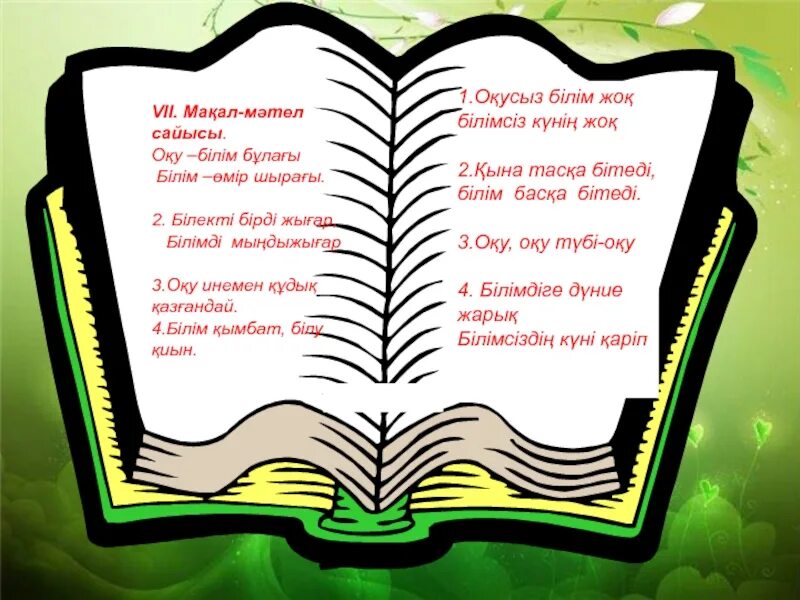 VII. Мақал-мәтел
сайысы.
Оқу –білім бұлағы
Білім –өмір шырағы.
2. Білекті бірді жығар,
Білімді мыңдыжығар
3.Оқу инемен құдық
қазғандай.
4.Білім қымбат, білу
қиын.
1.Оқусыз білім жоқ
білімсіз күнің жоқ
2.Қына тасқа бітеді,
білім басқа бітеді.
3.Оқу, оқу түбі-оқу
4. Білімдіге дүние
жарық
Білімсіздің күні қаріп